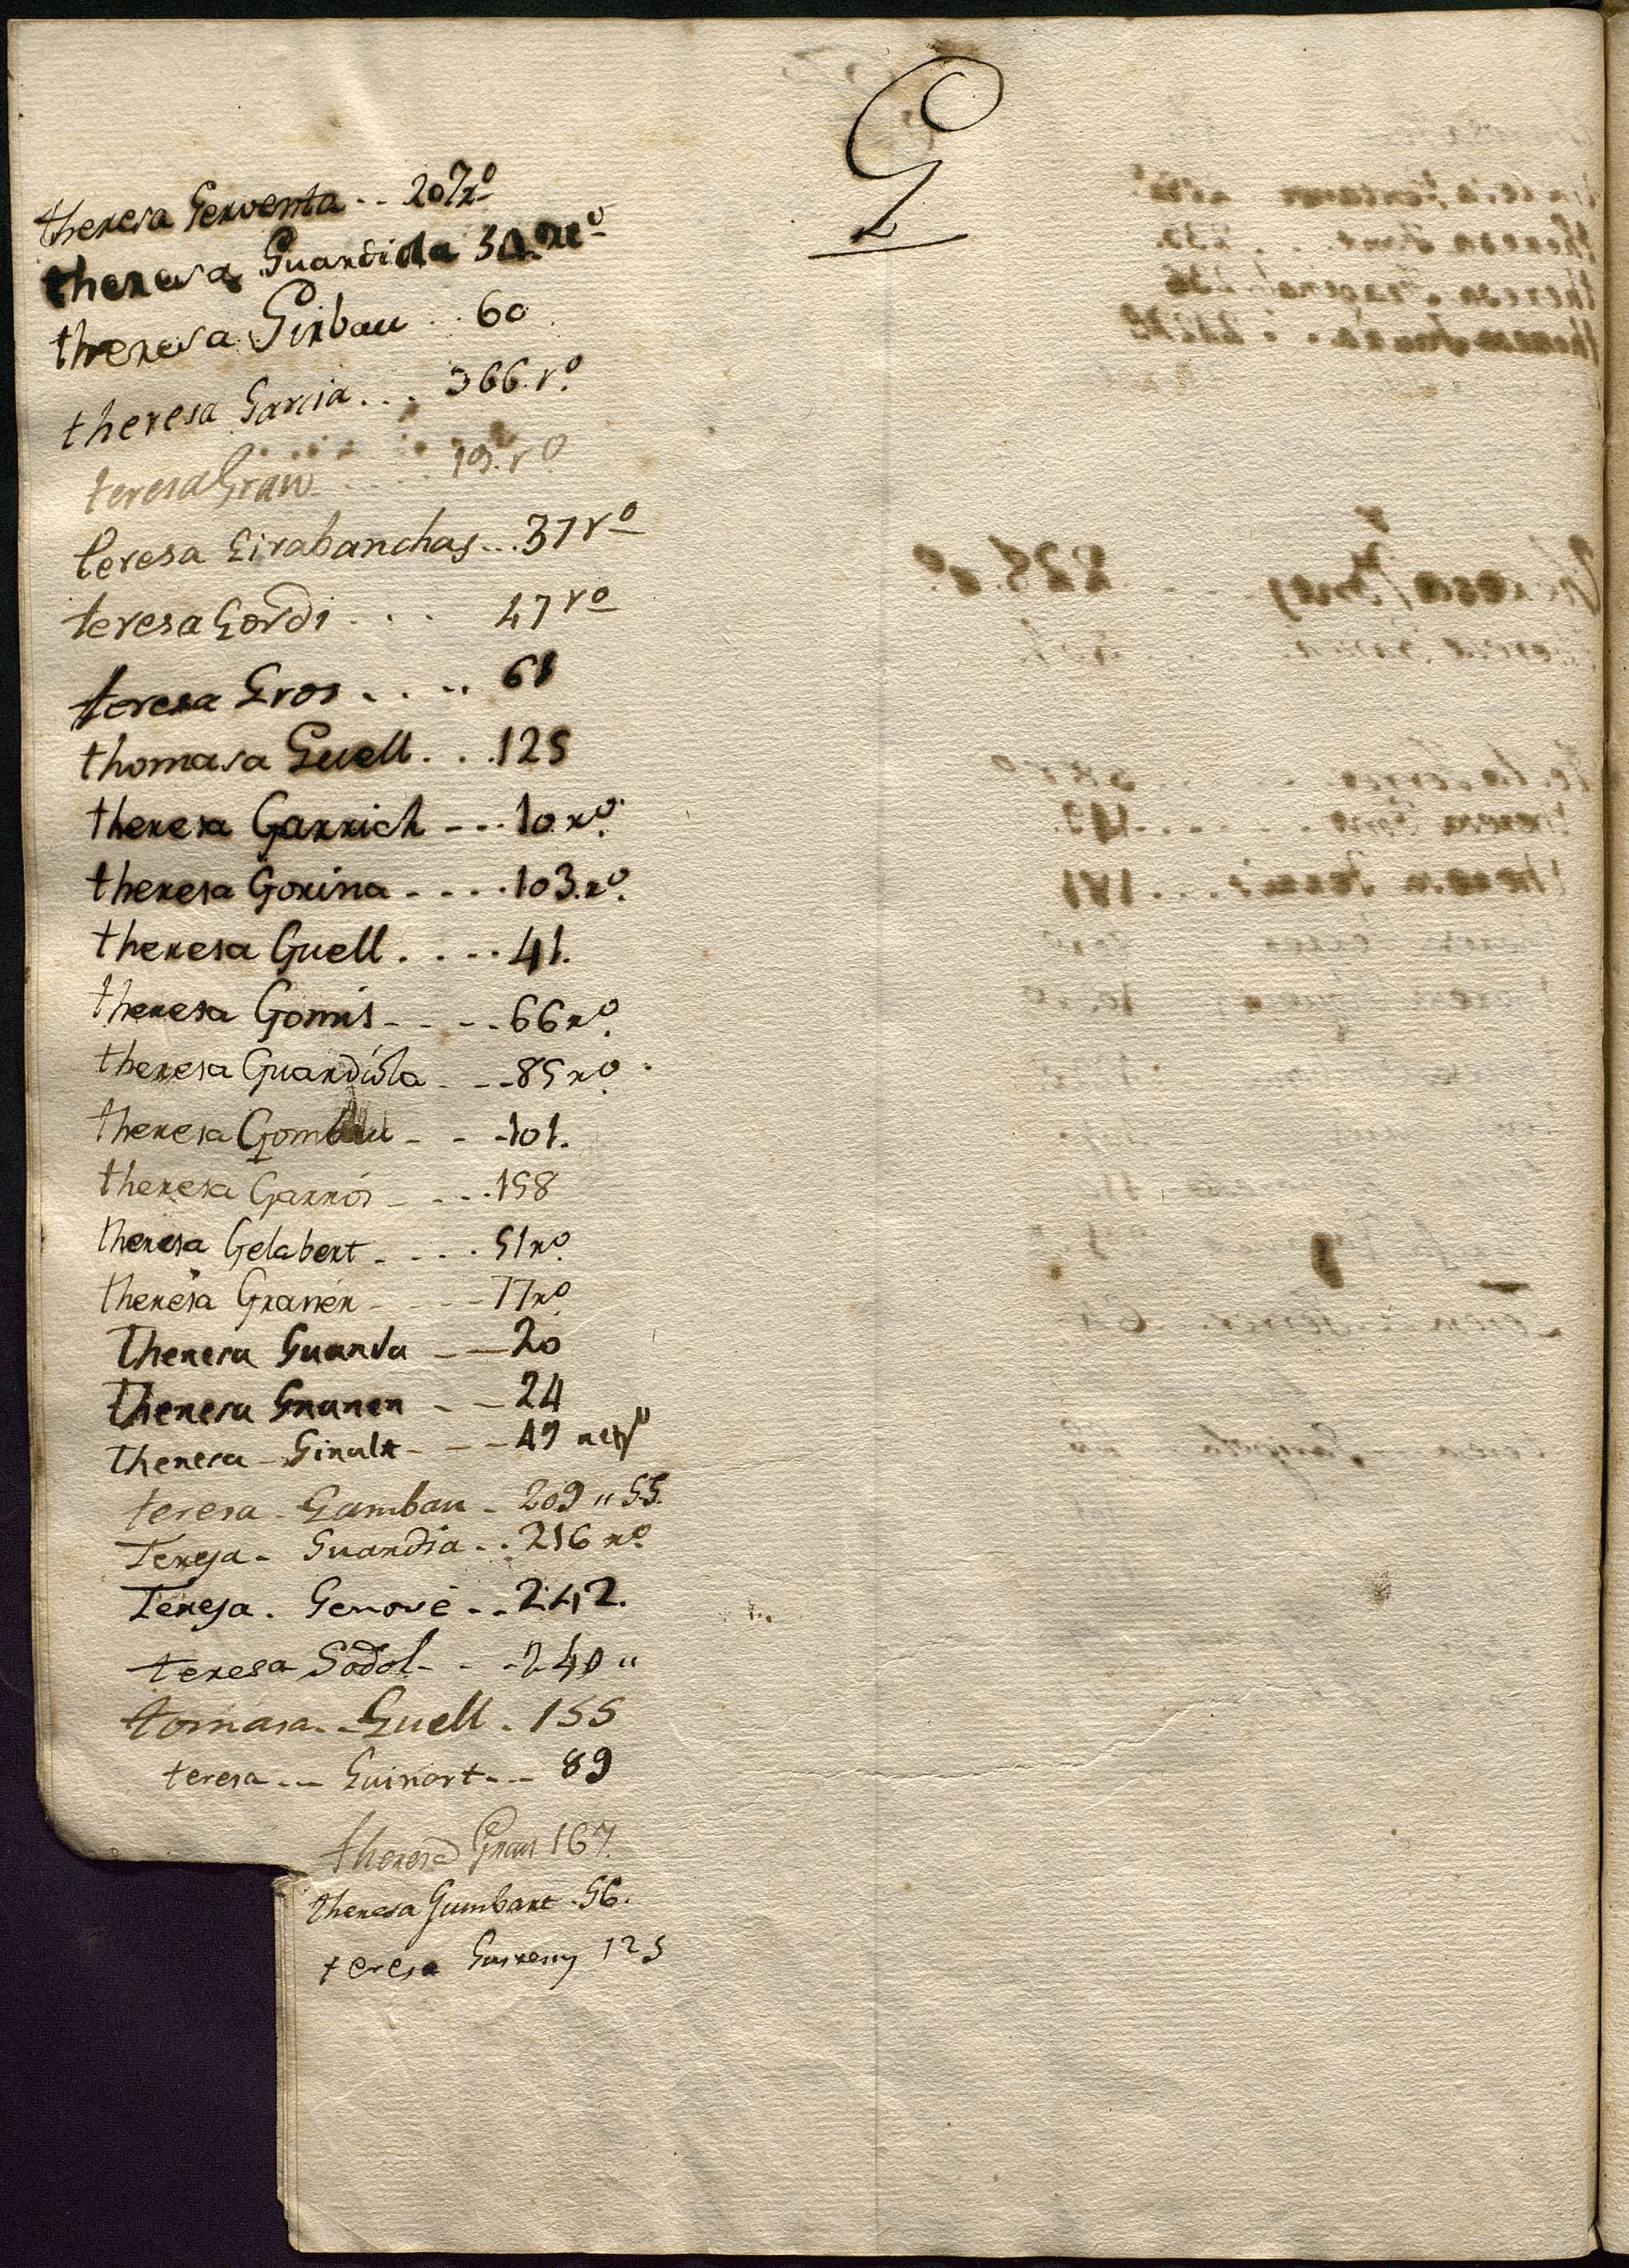 G
theresa Serventa .. 207 ro
theresa Guardiola 34. ro
theresa Girbau .. 60
theresa Garcia ... 366. ro
teresa Grau ..... 19. ro
teresa Girabanchas ... 37 ro
teresa Gordi .... 47 ro
teresa Gros .... 61
thomasa Guell ... 125
theresa Garrich --- 10. ro.
theresa Gorina ---- 103. ro.
theresa Guell .... 41.
theresa Gomis ---- 66 ro.
theresa Guardiola --- 85 ro.
theresa --- 101.
theresa Garros ---- 158
theresa Gelabert ---- 51 ro.
theresa Graner ---- 77 ro
Theresa Guarda -- 20
Theresa Graner -- 24
Theresa Giralt --- 49
teresa - Gambau - 209 " 55.
Teresa - Guardia .. 216 ro
Teresa. Genové .. 242.
teresa Sodol - - - 240 "
tomasa - Guell . 155
teresa -- Guinart -- 89
theresa Grau 167.
theresa Gumbare . 56.
teresa 125